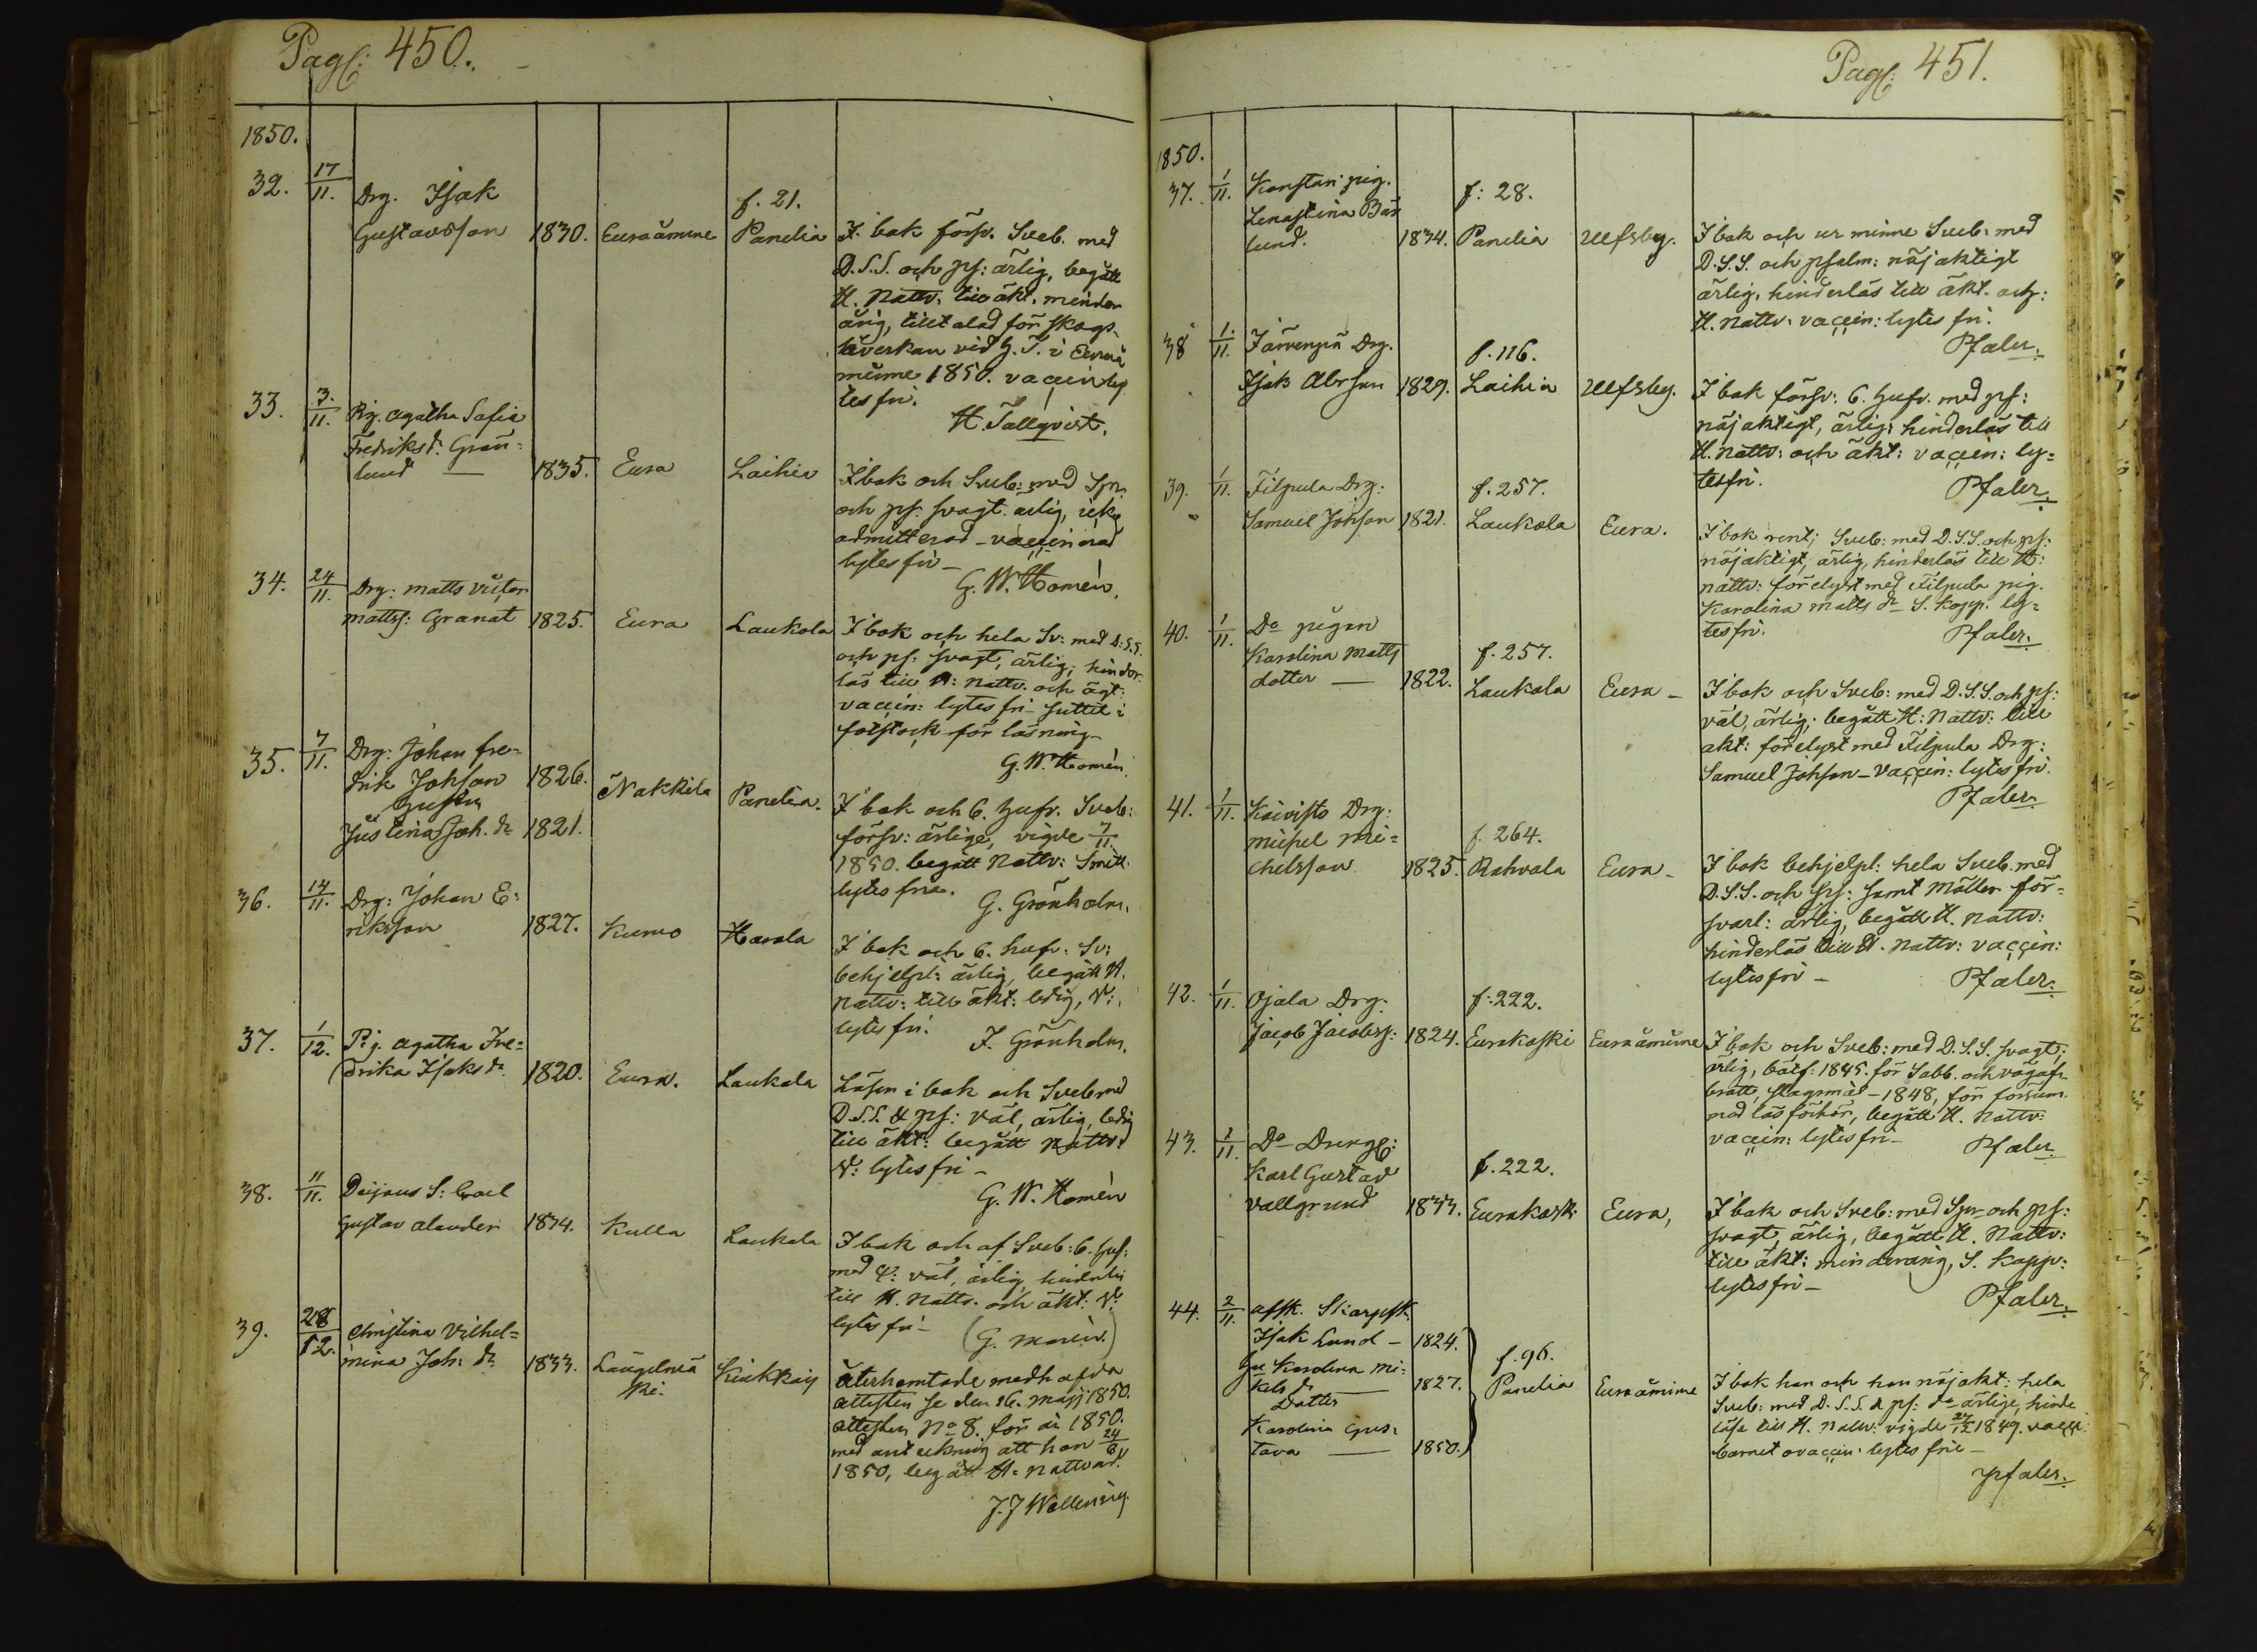 Pag: 450.
1850.
32. 17/11. Drg. Isak f. 21.
Gustavsson 1830. Euraåminne Panelia I bok försv. Sveb. med
D.S.S. och ps: ärlig, begått
H. Nattv. till äkt. minder
årig, tilltalad för skogs-
åverkan vid H.T. i Euraå
minne 1850. vaccin ly
tes fri.
H. Tallqvist.
33. 3/11. Pig. Agatha Sofia
Fredriksdr Grön-
lund — 1835. Eura Laihia I bok och Sveb: med Spr.
och ps. svagt. ärlig, icke
admitterad - vaccinerad
lytes fri -
G. W. Homén.
34. 24/11. Drg: Matts Victor
Mattss: Granat 1825. Eura Laukola I bok och hela Sv: med D:S.S.
och ps. svagt, ärlig, hinder-
lös till H: Nattv. och ägt:
vaccin: lytes fri - suttit i
fotstock för läsning -
G. W. Homén.
35. 7/11. Drg: Johan Fre-
drik Johsson 1826. Nakkila Panelia.
hustru
Justina Joh. dr 1821. I bok och 6. hufv. Sveb:
försv: ärlige, vigde 7/11.
1850. begått Nattv: Smitt.
lytes frie.
G. Grönholm.
36. 14/11. Drg: Johan E-
riksson 1827. Kumo Harola I bok och 6. hufv: Sv:
behjelpl: ärlig, begått H.
Nattv: till äkt: ledig, V:
lytes fri.
F. Grönholm.
37. 1/12. Pig. Agatha Fre-
drika Isaks dr 1820. Eura. Laukola Läser i bok och Sveb med
D.S.S. & ps: väl, ärlig, ledig
till äkt: begått Nattv.
V: lytes fri -
G. W. Homén
38. 11/11. S: Carl
Gustav Alander 1834. Kulla Laukola I bok och af Sveb: 6. huf:
med väl, ärlig, hinderlös
till H. Nattv. och äkt: V:
lytes fri -
39. 28/12. Christina Vilhel-
mina Joh: dr 1833. Längelmä
ki. Kiukkais Återhemtade medhafda
attesten se den 26. Maj 1850.
Attesten No 8. för år 1850.
med anteckning att hon 24/
1850, begått H: Nattvard.
J. J. Wallenius
Pag: 451.
1850.
37. 1/11. Konstari pig. f: 28.
Lenastina Bär
lund. 1834. Panelia Ulfsby. I bok och ur minne Sveb: med
D.S.S. och psalm: nöjaktigt
ärlig, hinderlös till äkt. och:
H. Nattv. vaccin: lytes fri.
Pfaler.
38 1/11. Järvenpä Drg. f. 116.
Isak Abrson 1829. Laihia Ulfsby. I bok försv: 6. hufv. med ps:
nöjaktigt, ärlig: hinderlös till
H. Nattv: och äkt: vaccin: ly-
tes fri.
Pfaler.
39. 1/11. Filpula Drg: f. 257.
Samuel Johsson 1821. Laukola Eura. I bok rent; Sveb: med D.S.S. och ps:
nöjaktigt, ärlig, hinderlös till H:
nattv: förelyst med Filpula pig.
Karolina Matts dr S. Kopp. ly-
tes fri.
Pfaler.
40. 1/11. Do pigan
Karolina Matts f. 257.
dotter — 1822. Laukola Eura - I bok och Sveb: med D.S.S. och ps:
väl, ärlig; begått H: Nattv: till
äkt: förelyst med Filpula Drg:
Samuel Johsson - vaccin: lytes fri.
Pfaler.
41. 1/11. Koivisto Drg:
Michel Mi- f. 264.
chelsson 1825. Rahvola Eura - I bok behjelpl: hela Sveb. med
D.S.S. och ps: samt Möller för-
svarl: ärlig, begått H. Nattv:
hinderlös till H. Nattv: vaccin:
lytes fri -
Pfaler.
42. 1/11. Ojala Drg. f: 222.
Jacob Jacobss: 1824. Eurakoski Euraåminne I bok och Sveb: med D.S.S. svagt;
ärlig, bötf: 1845. för Sabb. och
brott, slagsmål - 1848, för försum-
mad läsförhör, begått H. Nattv:
vaccin: lytes fri -
Pfaler.
43. 1/11. Do Dreng:
Karl Gustav f. 222.
Vallgrund 1833. Eurakosk. Eura, I bok och Sveb: med Spr och ps:
svagt, ärlig, begått H. Nattv:
till äkt: minderårig, S. Kopp:
lytes fri -
Pfaler.
44. 2/11. afsk. Skarpsk.
Isak Lund - 1824.
Hu Karolina Mi-
kels dr — 1827. f. 96.
Panelia Euraåminne
Dotter
Karolina Gus-
tava — 1850. I bok han och hon nöjakt: hela
Sveb: med D.S.S. & ps: do ärlige, hinder
löse till H. Nattv: vigde 27/12 1849. vacci:
barnet ovaccin: lytes frie -
Pfaler.